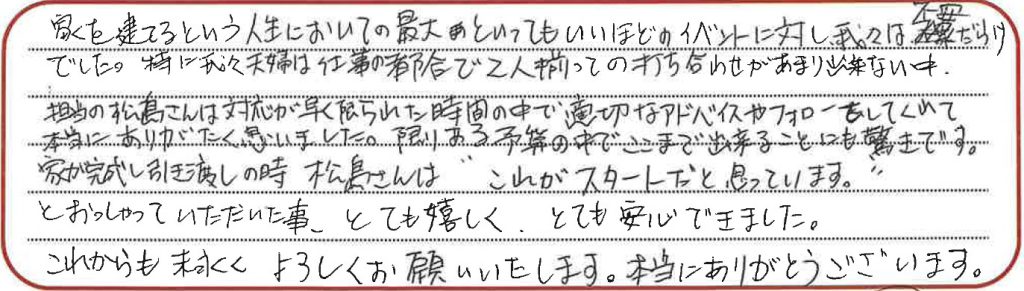 家を建てるという人生においての最大といってもいいほどのイベントに対し、我々は不安だらけ
でした。特に我々夫婦は仕事の都合で2人揃っての打ち合わせがあまり出来ない中、
担当の松島さんは対応が早く限られた時間の中で適切なアドバイスやフォローをしてくれて
本当にありがたく思いました。限りある予算の中でここまで出来ることにも驚きです。
家が完成し引き渡しの時 松島さんは "これがスタートだと思っています。"
とおっしゃっていただいた事、とても嬉しく、とても安心できました。
これからも末永く よろしくお願いいたします。本当にありがとうございます。